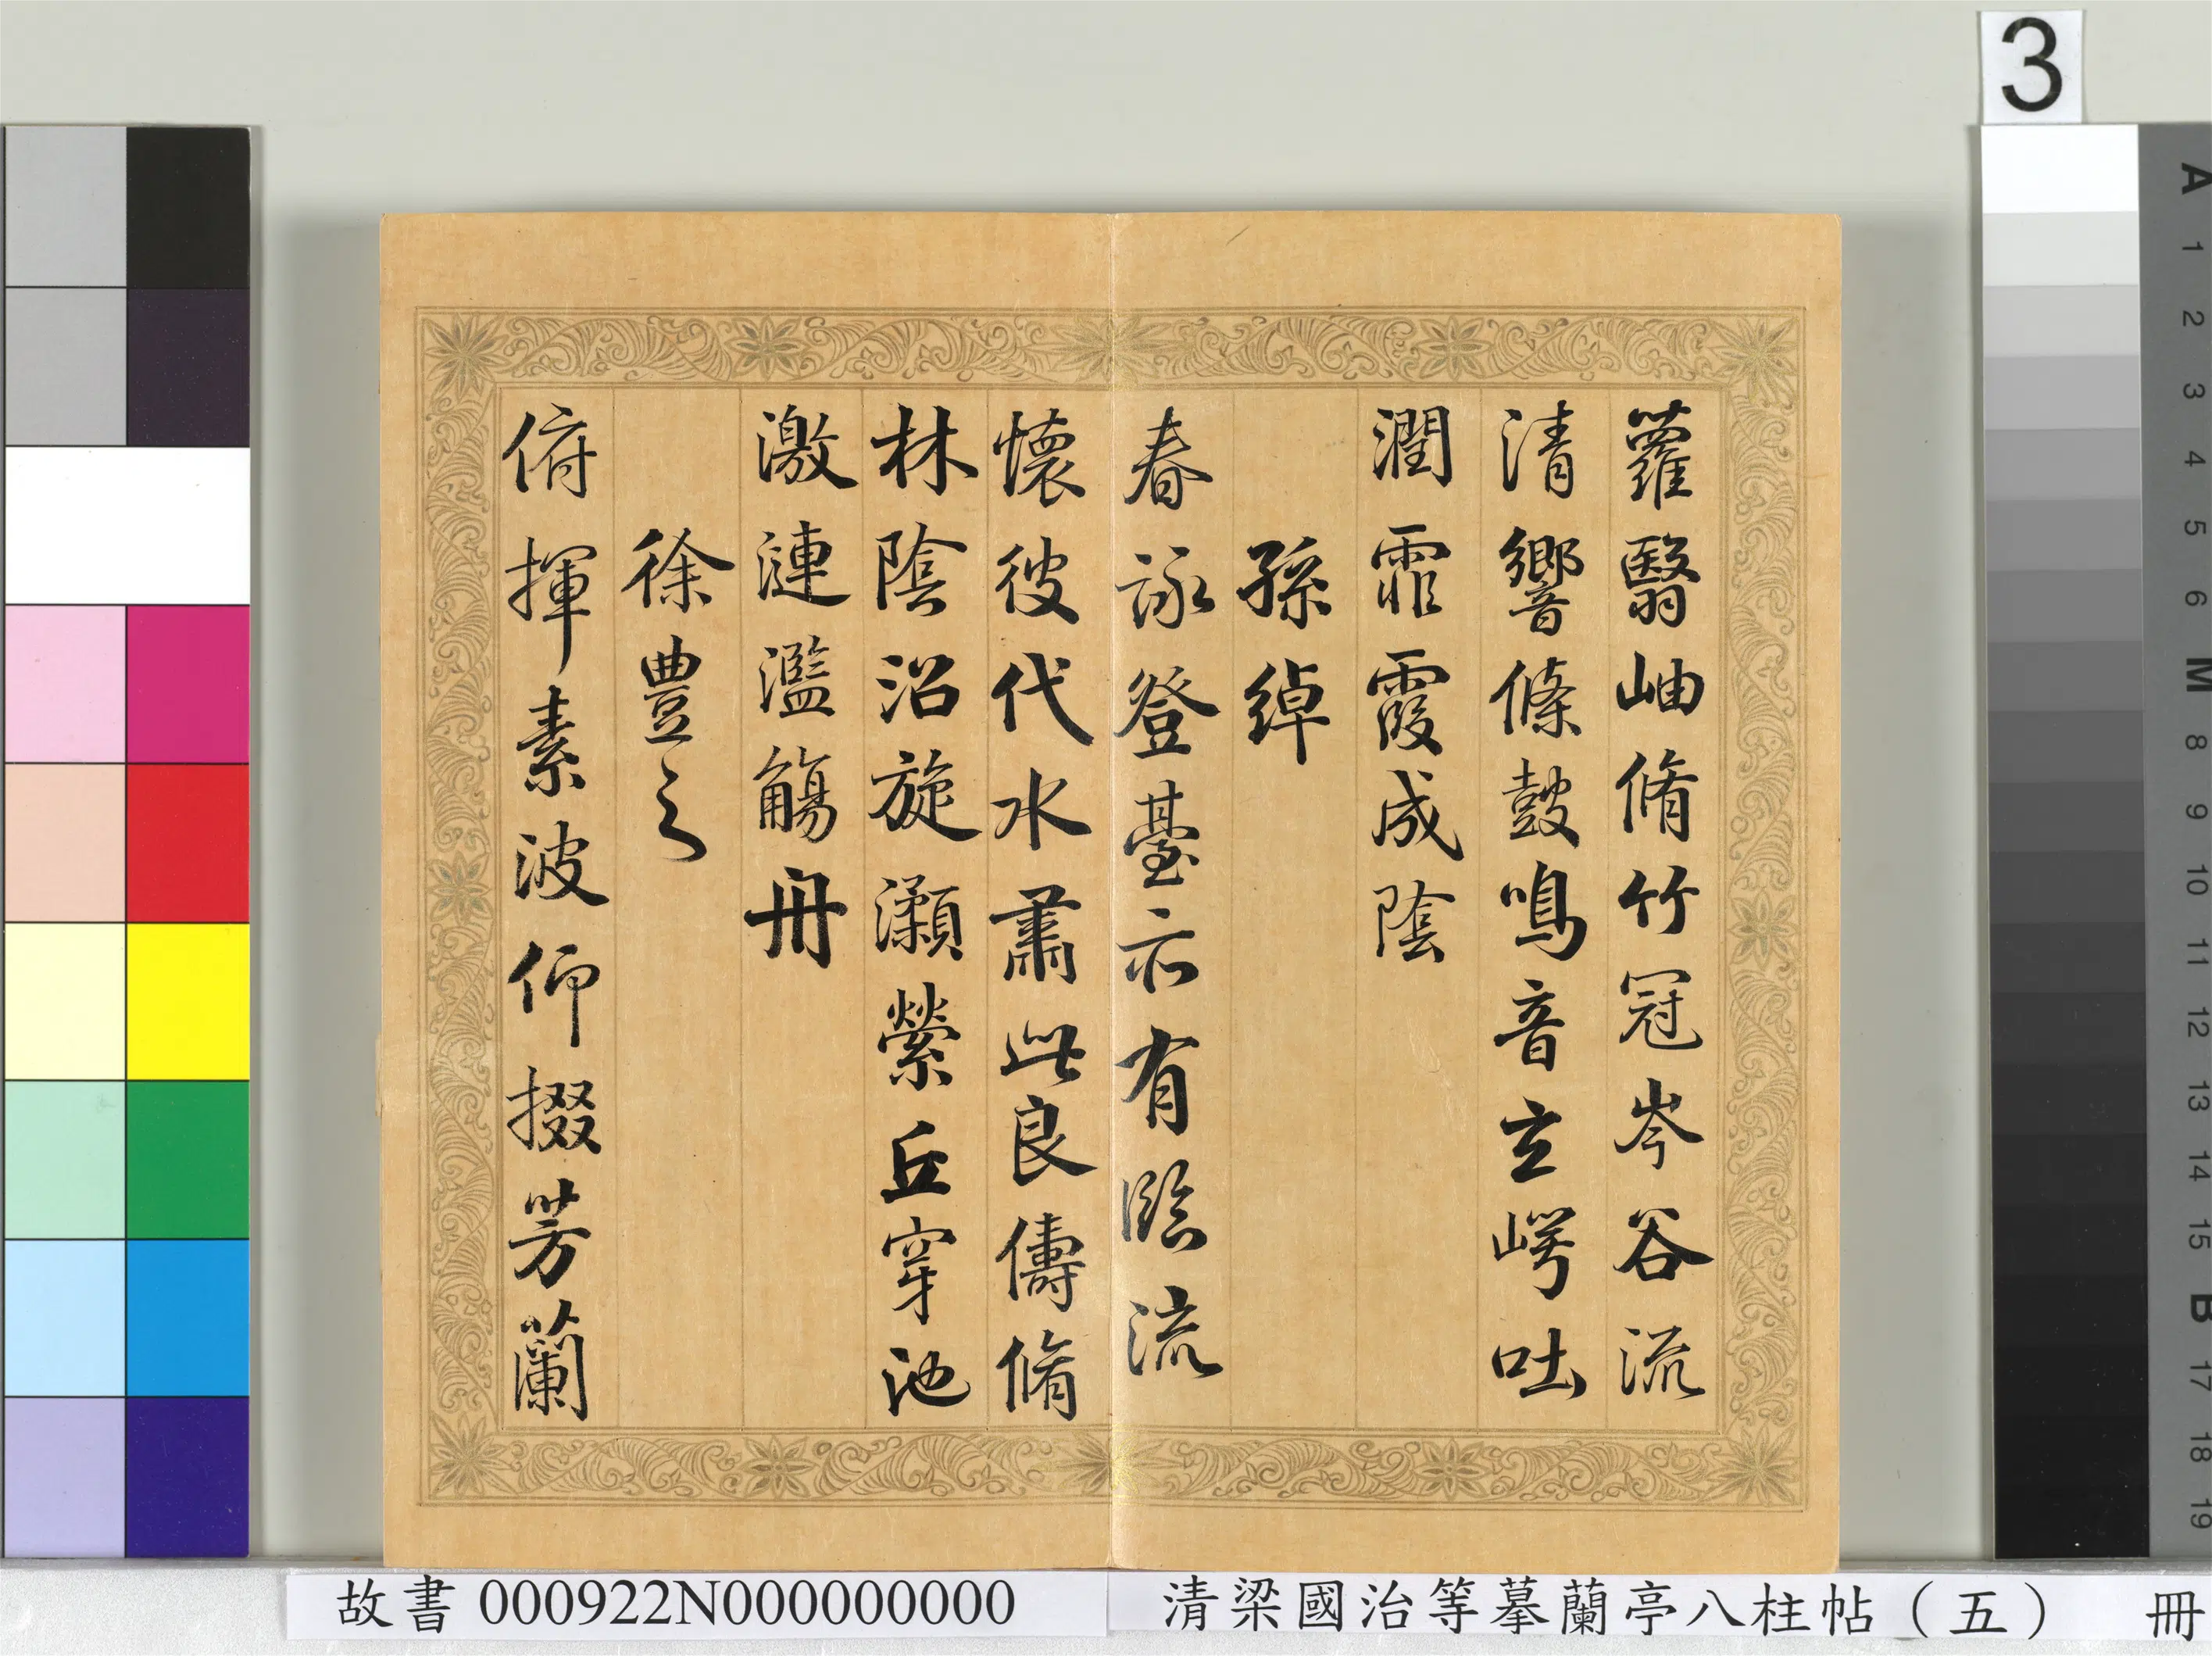 蘿翳岫脩竹冠岑谷流
清響條鼓鳴音玄崿吐
潤霏霧成陰
孫綽
春詠登臺亦有臨流
懷彼代水肅此良儔脩
林陰沼旋瀨縈丘穿池
激漣濫觴舟
徐豊之
俯揮素波仰掇芳蘭
3
A
1
2
3
4
5
6
M
8
9
10
11
12
13
14
15
B
17
18
19
故書 000922N000000000
清梁國治等摹蘭亭八柱帖（五） 冊